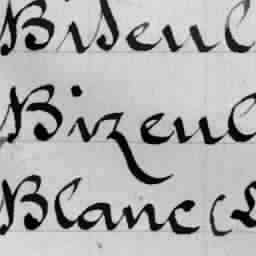 Biseul
Bizeul
Blanc (L